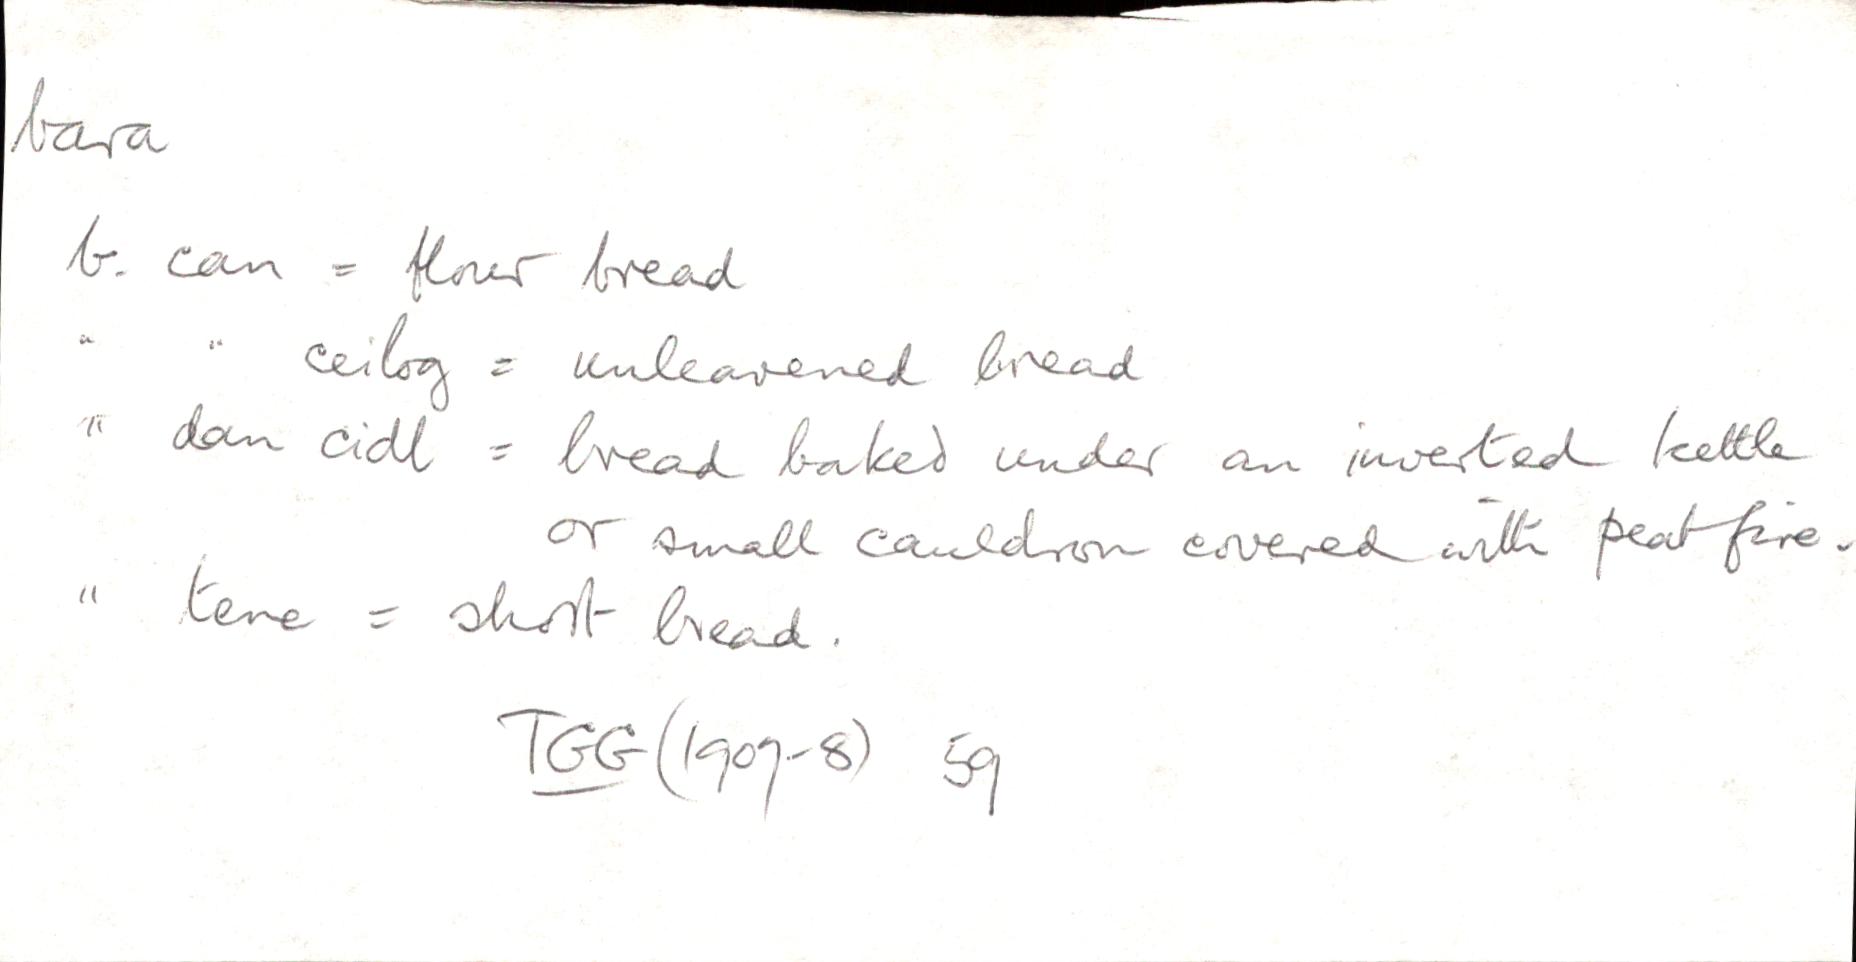 bara
b. can = flour bread
" " ceilog = unleavened bread
" dan cidl = bread baked under an inverted kettle
or small cauldron covered with peat fire.
" tene = short bread.
TGG (1907-8) 59